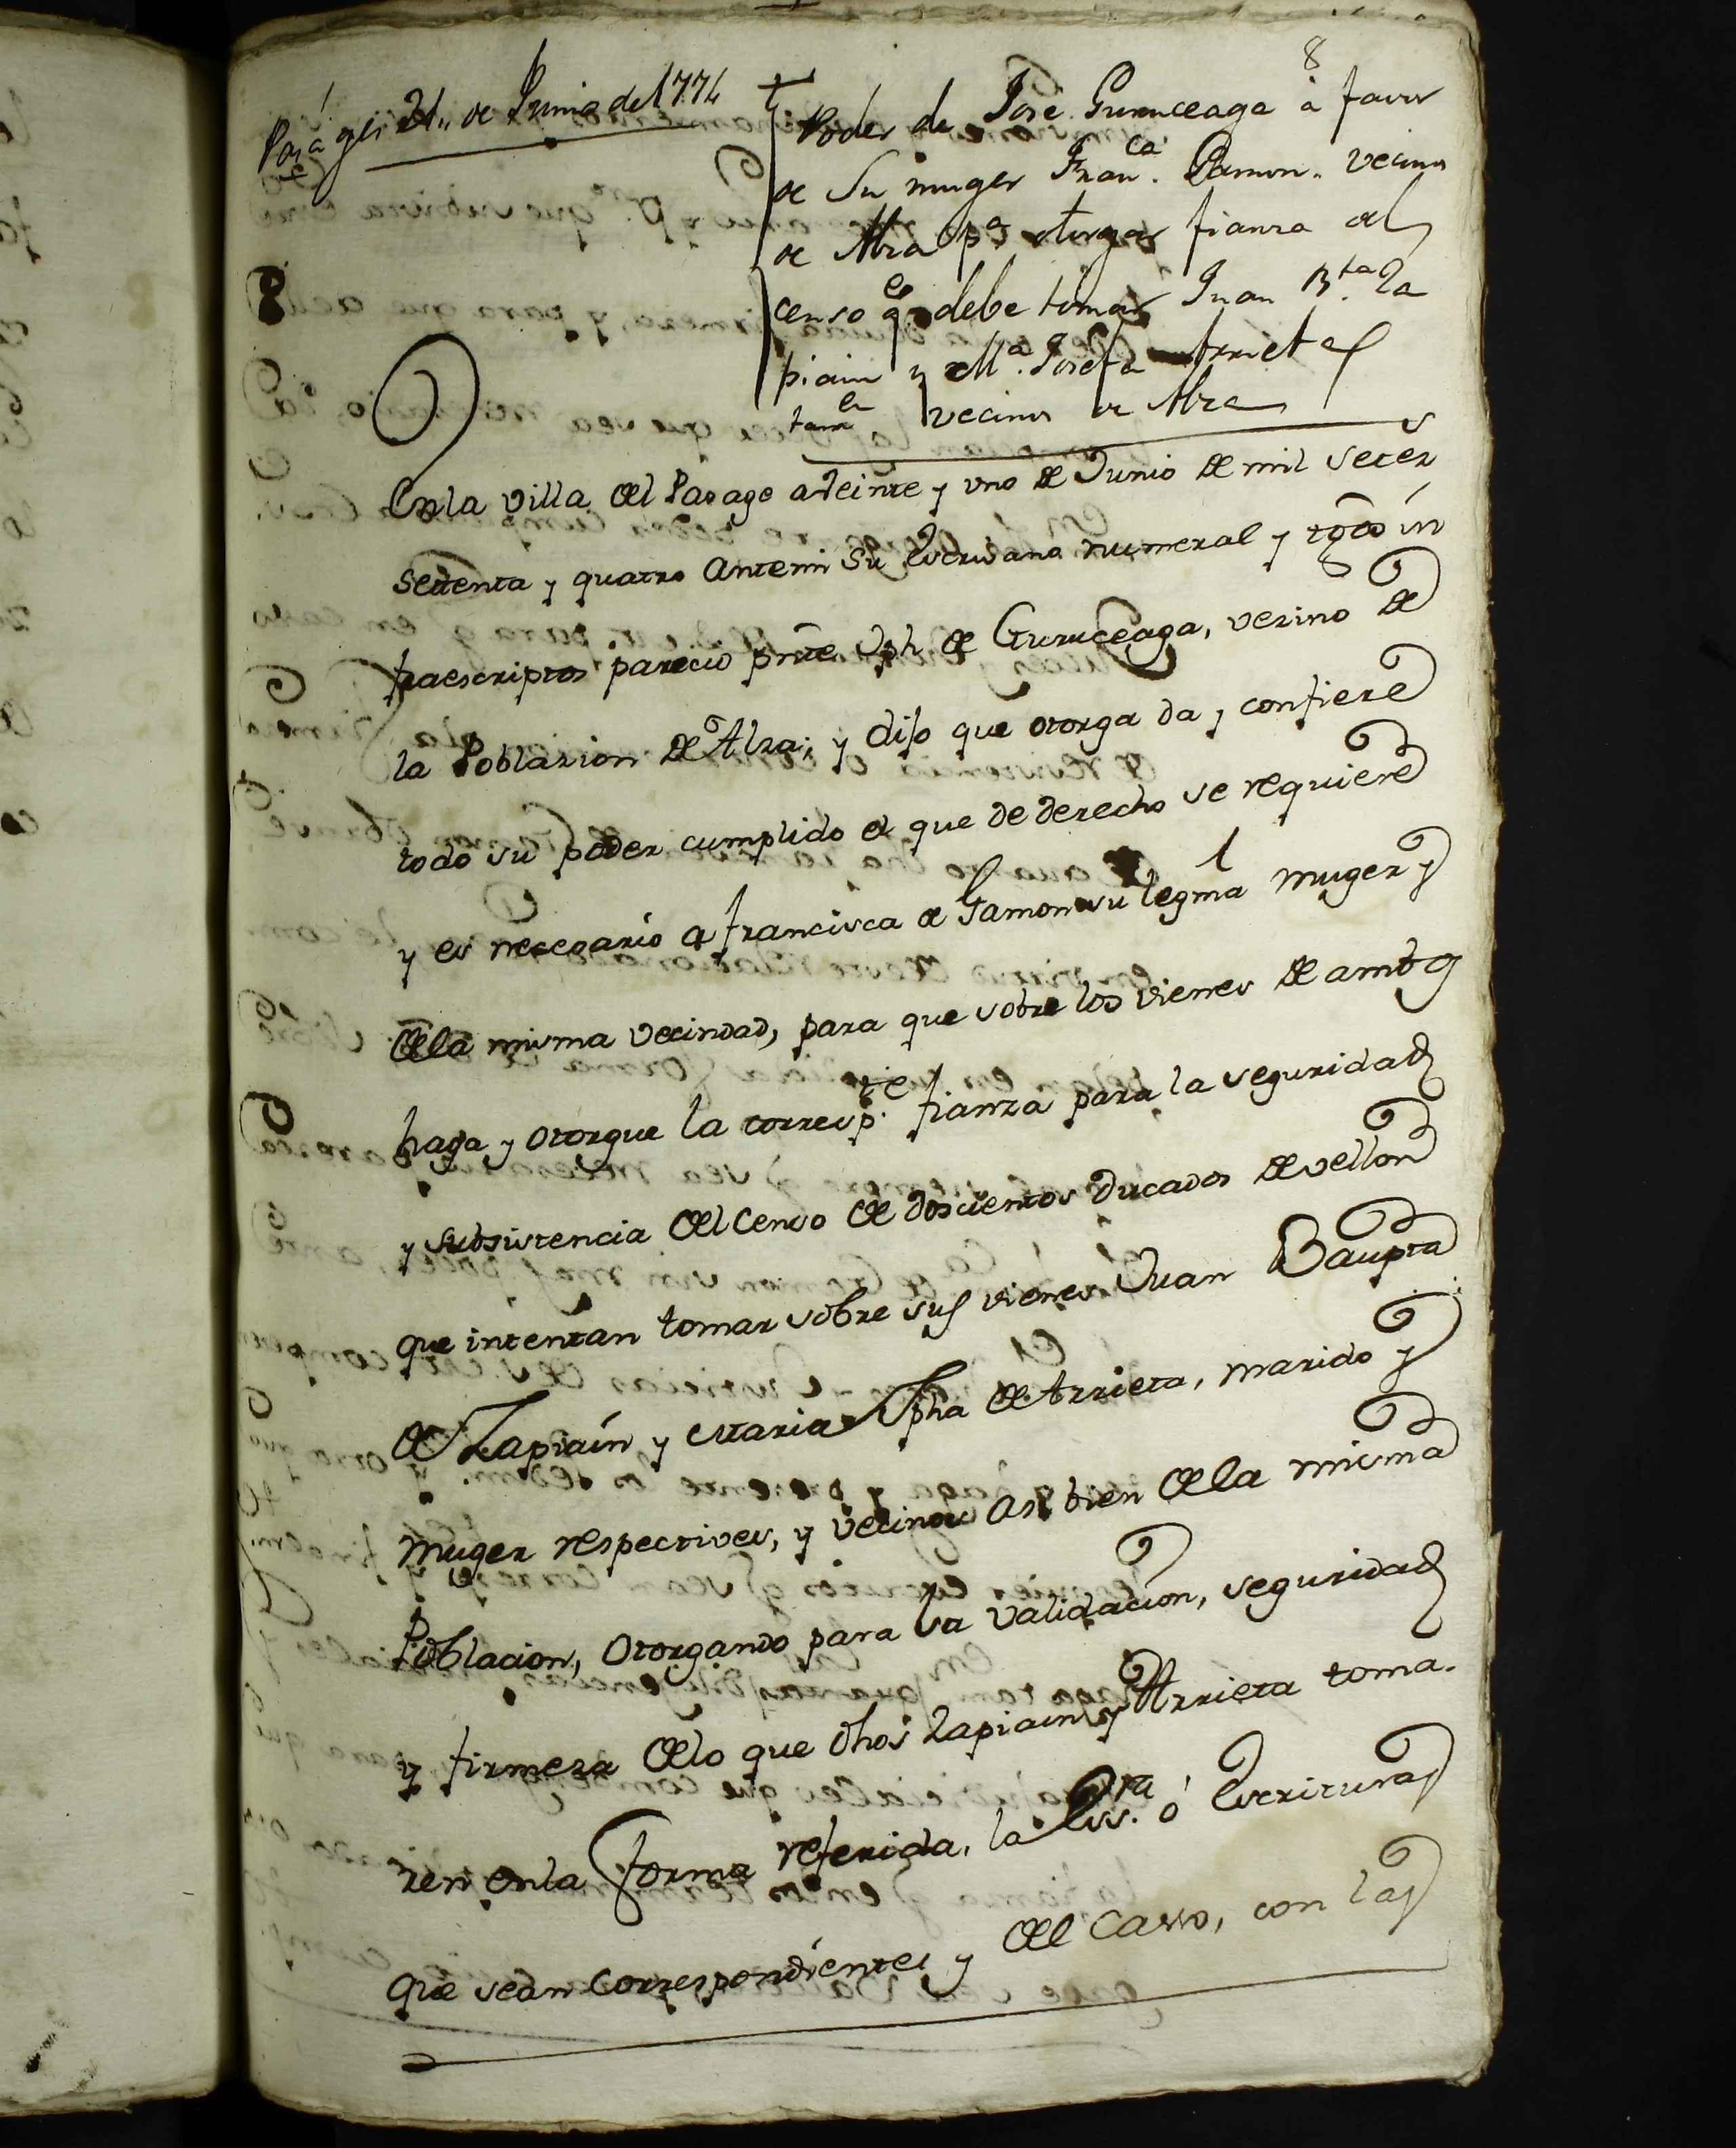 8
Pasages 21,, de Junio de 1774
Poder de Jose Guruceaga à favor
de Su muger Fran.ca Gamon. vecinos
de Alza p.a otorgar fianza del
censo q.e debe tomar Juan B.ta Za
piain y M.a Josefa Arrieta
tam.e vecinos de Alza
8
En la villa del Pasage a Veinte y uno de Junio de mil setez.s
setenta y quatro ante mi su Escrivano numeral y tgôs in
fraescriptos parecio prnte Jph de Guruceaga, vezino de
la Poblazion de Alza; y dijo que otorga da y confiere
todo su poder cumplido el que de derecho se requiere
y es nesesario a Francisca de Gamon su legma muger y
de la misma vecindad, para que sobre los vienes de ambos
haga y otorgue la corresp.te fianza para la seguridad
y subsistencia del Censo de doscientos ducados de vellon
que intentan tomar sobre sus vienes Juan Baupta
de Zapiaín y Maria Jpha de Arrieta, marido y
muger respectives, y vecinos asi bien de la misma
Poblacion, otorgando para la validacion, seguridad
y firmeza de lo que dhos Zapiain y Arrieta toma-
ren en la forma referida, la Ess.ra ó Escrituras
que sean correspondientes y del Casso, con las